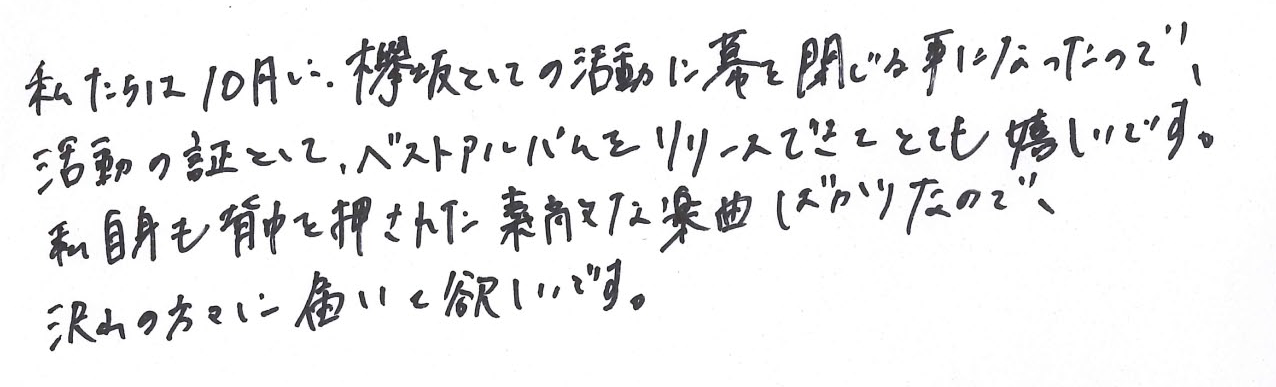 私たちは10月に、欅坂としての活動に幕を閉じる事になったので、
活動の証として、ベストアルバムをリリースできてとても嬉しいです。
私自身も背中を押された素敵な楽曲ばかりなので、
沢山の方々に届いて欲しいです。